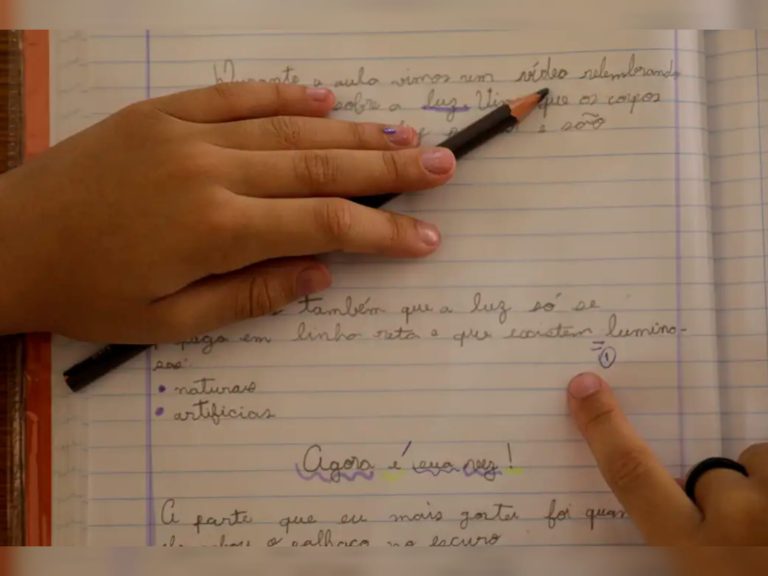 Durante a aula vimos um vídeo relembrando
sobre a luz. Vimos que os corpos
e são
também que a luz só se
em linha reta e que existem lumino-
sos:
• naturais
• artificias
①
Agora é sua vez!
A parte que eu mais gostei foi quan
o palhaço no escuro